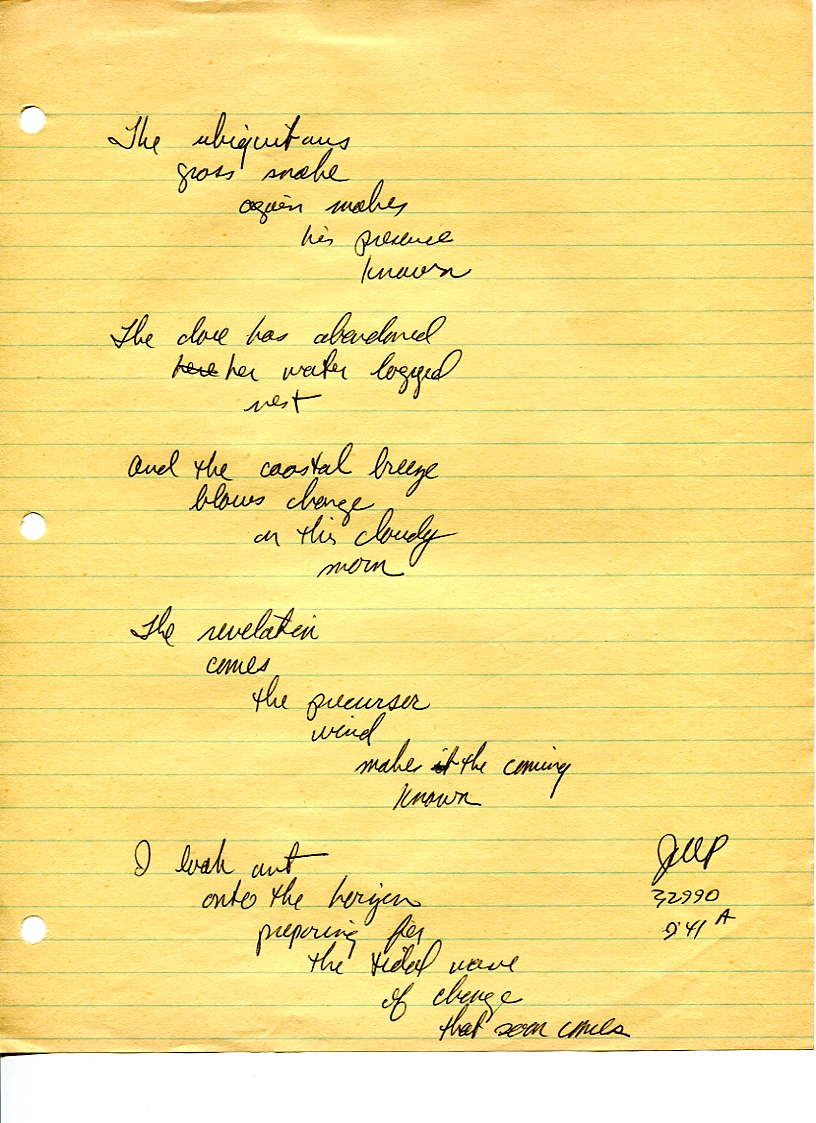 The ubiquitous
gross snake
again makes
his presence
known
The dove has abandoned
here her water logged
nest
and the coastal breeze
blows change
on this cloudy
morn
The revelation
comes
the precurser
wind
makes it the coming
known
I look out
onto the horizen
preparing for
the tidal wave
of change
that soon comes
32990
9:41 A